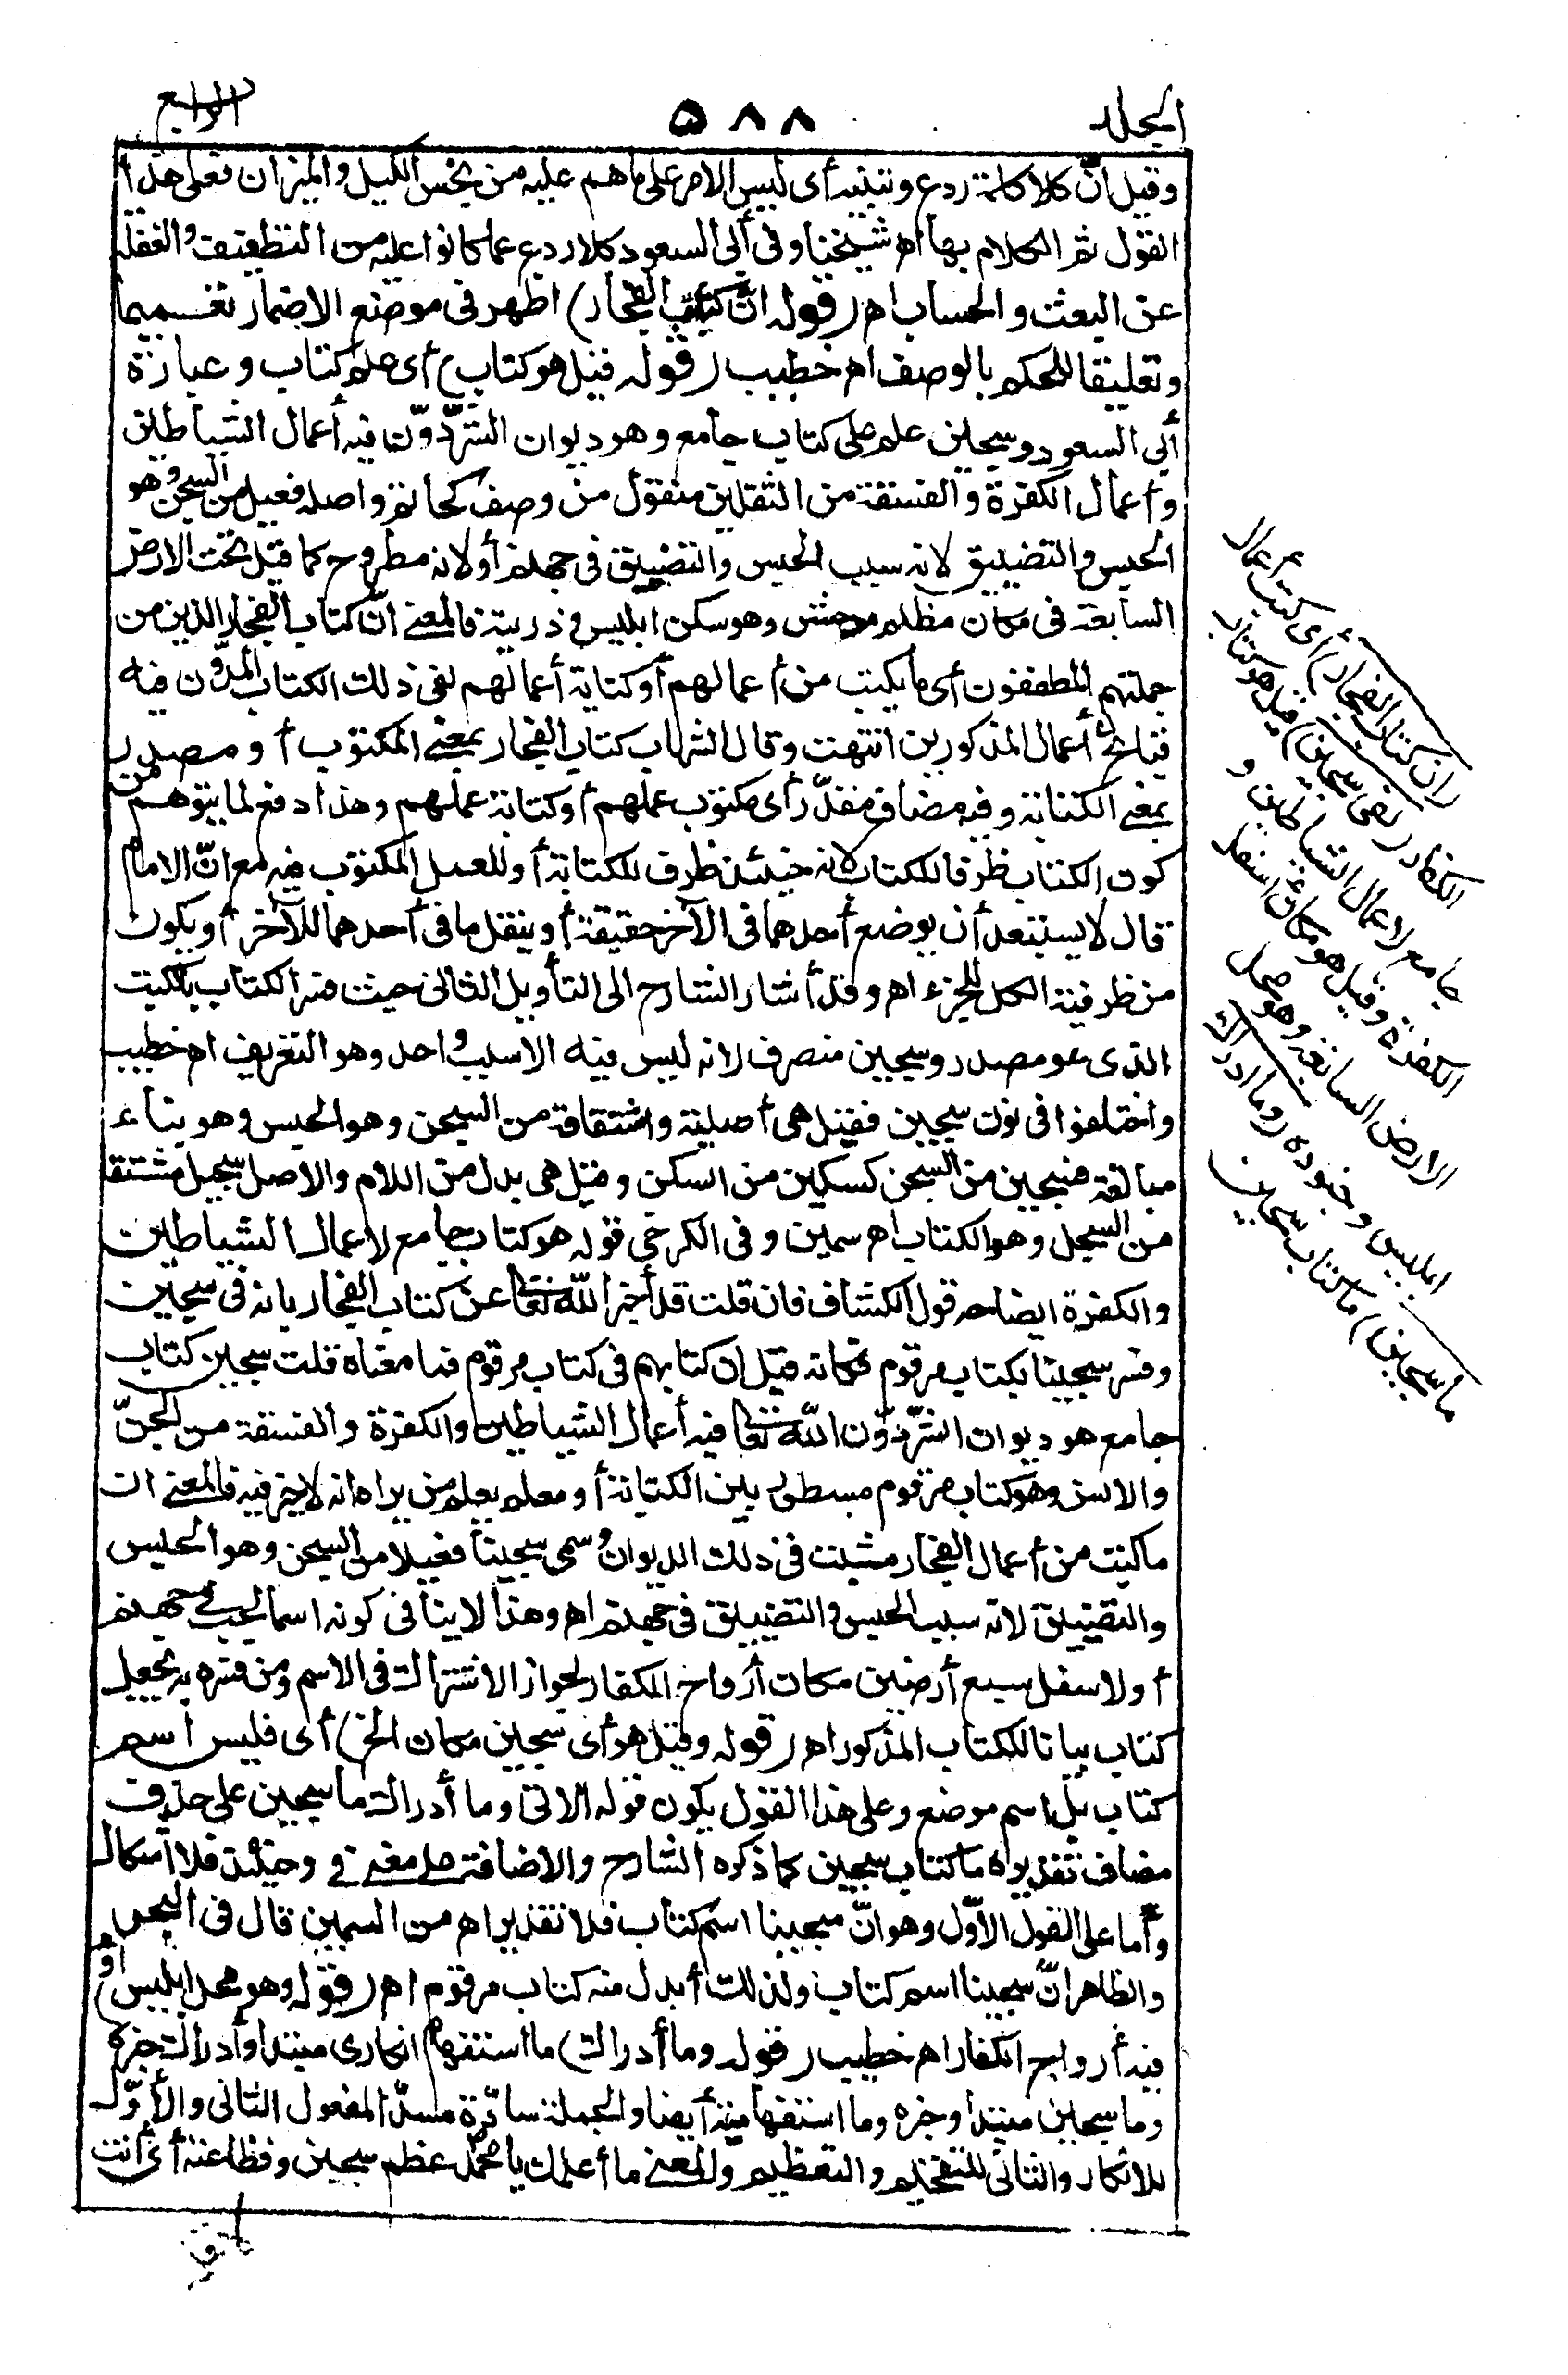 المجلد
٥٨٨
الرابع
وقيل انّ كلا كلمة ردع وتنبيه أى ليس الامر على ما هم عليه من بخس الكيل والميزان فعلى هذا
القول تم الكلام بها اھ شيخنا وفى أبى السعود كلا ردع عما كانوا عليه من التطفيف والغفلة
عن البعث والحساب اھ (قوله انّ كتاب الفجار) اظهر فى موضع الاضمار تعميما
وتعليقا للحكم بالوصف اھ خطيب (قوله قيل هو كتاب) أى علم كتاب وعبارة
أبي السعود وسجين علم على كتاب جامع وهو ديوان الشرّ دوّن فيه أعمال الشياطين
وأعمال الكفرة والفسقة من الثقلين منقول من وصف كحاتم واصله فعيل من السجن وهو
الحبس والتضييق لانه سبب الحبس والتضييق فى جهنم أو لانه مطروح كما قيل تحت الارض
السابعة فى مكان مظلم موحش وهو سكن ابليس وذريته فالمعنى انّ كتاب الفجار الذين من
جملتهم المطففون أى ما يكتب من أعمالهم أو كتابة أعمالهم لفى ذلك الكتاب المدوّن فيه
قبائح أعمال المذكورين انتهت وقال الشهاب كتاب الفجار بمعنى المكتوب أو مصدر
بمعنى الكتابة وفيه مضاف مقدّر أى مكتوب عملهم أو كتابة عملهم وهذا دفع لما يتوهم من
كون الكتاب ظرفا للكتاب لانه حينئذ ظرف للكتابة أو للعمل المكتوب فيه مع انّ الامام
قال لا يستبعد أن يوضع أحدهما فى الآخر حقيقة أو ينقل ما فى أحدهما للآخر أو يكون
من ظرفية الكل للجزء اھ وقد أشار الشارح الى التأويل الثانى حيث فسر الكتاب بالكتب
الذى هو مصدر وسجين منصرف لانه ليس فيه الا سبب واحد وهو التعريف اھ خطيب
واختلفوا فى نون سجين فقيل هى أصلية واشتقاقه من السجن وهو الحبس وهو بناء
مبالغة فسجين من السجن كسكين من السكن وقيل هى بدل من اللام والاصل سجيل مشتقا
من السجل وهو الكتاب اھ سمين وفى الكرخى قوله هو كتاب جامع لاعمال الشياطين
والكفرة ايضاحه قول الكشاف فان قلت قد أخبر الله تعالى عن كتاب الفجار بانه فى سجين
وفسر سجينا بكتاب مرقوم فكانه قيل ان كتابهم فى كتاب مرقوم فما معناه قلت سجين كتاب
جامع هو ديوان الشرّ دوّن الله تعالى فيه أعمال الشياطين والكفرة والفسقة من الجنّ
والانس وهو كتاب مرقوم مسطور بين الكتابة أو معلم يعلم من يراه انه لا خير فيه فالمعنى ان
ما كتب من أعمال الفجار مثبت فى ذلك الديوان وسمى سجينا فعيلا من السجن وهو الحبس
والتضييق لانه سبب الحبس والتضييق فى جهنم اھ وهذا لا ينافى كونه اسما لجب فى جهنم
أو لاسفل سبع أرضين مكان أرواح الكفار لجواز الاشتراك فى الاسم ومن فسره به يجعل
كتاب بيانا للكتاب المذكور اھ (قوله وقيل هو أى سجين مكان الخ) أى فليس اسم
كتاب بل اسم موضع وعلى هذا القول يكون قوله الاتى وما أدراك ما سجين على حذف
مضاف تقديره ما كتاب سجين كما ذكره الشارح والاضافة على معنى فى وحينئذ فلا اشكال
وأما على القول الأوّل وهو انّ سجينا اسم كتاب فلا تقدير اھ من السمين قال فى البحر
والظاهر انّ سجينا اسم كتاب ولذلك أبدل منه كتاب مرقوم اھ (قوله وهو محل ابليس) أو
فيه أرواح الكفار اھ خطيب (قوله وما أدراك) ما استفهام انكارى مبتدا وأدراك خبره
وما سجين مبتدا وخبره وما استفهامية أيضا والجملة سادّة مسدّ المفعول الثانى والأوّل
للانكار والثانى للتفخيم والتعظيم والمعنى ما أعلمك يا محمد عظم سجين وفظاعته أى أنت
(ان كتاب الفجار) أى كتب أعمال
الكفار (لفى سجين) قيل هو كتاب
جامع لاعمال الشياطين و
الكفرة وقيل هو مكان أسفل
الارض السابعة وهو محل
ابليس وجنوده (وما ادراك
ما سجين) ما كتاب سجين